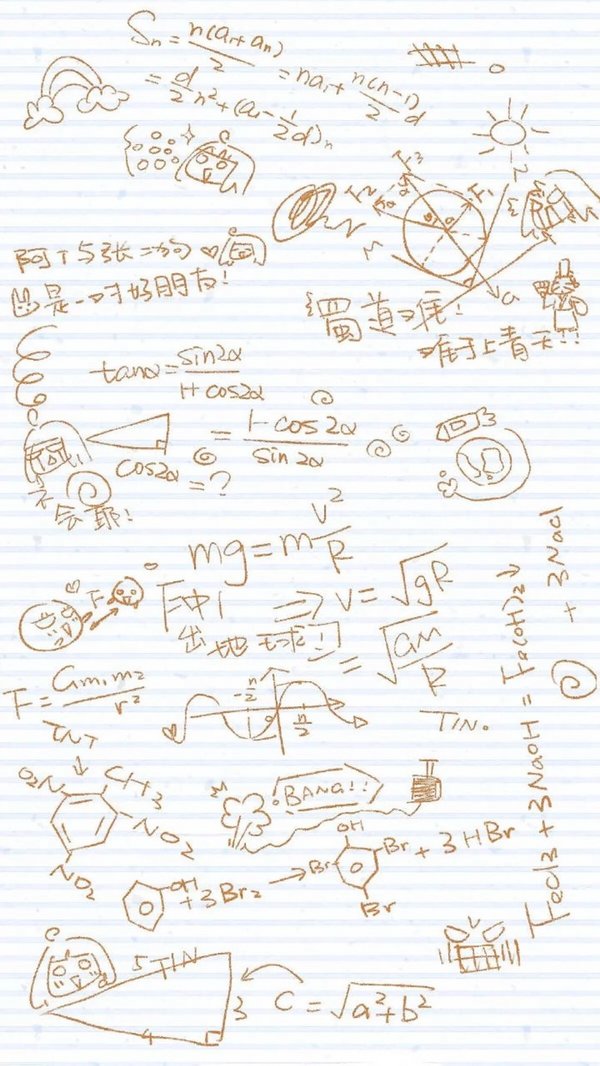 Sn = n(a1+an)/2 = na1 + n(n-1)/2 d
= d/2 n² + (a1 - 1/2 d)n
F3
F2
F1
M
G
阿丁与张二狗
是一对好朋友!
蜀道难!
难于上青天!!
tanα = sin2α/1+cos2α
= 1-cos2α/sin2α
cos2α = ?
不会耶!
mg = m v²/R
F
⇒ v = √gR
冲出地球!
= √GM/R
F = Gm1m2/r²
-π/2
π/2
TIN.
TNT
O2N
CH3
NO2
NO2
BANG!!
OH
+3Br2 →
OH
Br
Br
Br
+ 3HBr
FeCl3 + 3NaOH = Fe(OH)3↓ + 3NaCl
5 TIN
3
4
C = √a²+b²